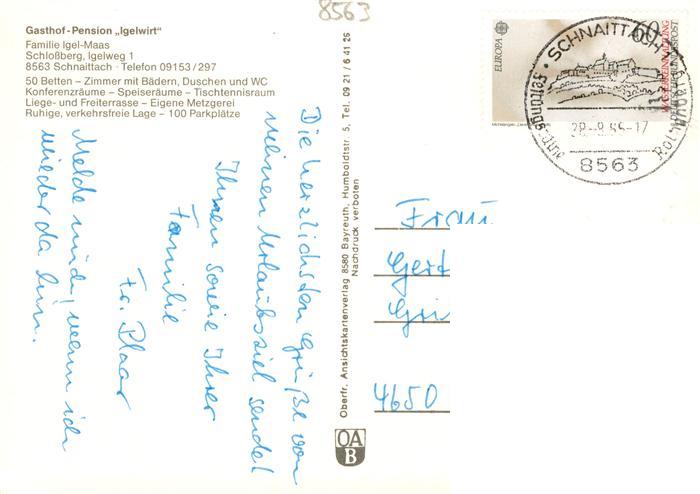 8563
Gasthof-Pension „Igelwirt"
Familie Igel-Maas
Schloßberg, Igelweg 1
8563 Schnaittach · Telefon 09153/297
50 Betten – Zimmer mit Bädern, Duschen und WC
Konferenzräume – Speiseräume – Tischtennisraum
Liege- und Freiterrasse – Eigene Metzgerei
Ruhige, verkehrsfreie Lage – 100 Parkplätze
Die herzlichsten Grüße von
meinem Urlaubsziel sendet
Ihnen sowie Ihrer
Familie
Fr. Plaar
Melde mich, wenn ich
wieder da bin.
Oberfr. Ansichtskartenverlag 8580 Bayreuth, Humboldtstr. 5, Tel. 09 21 / 6 41 26
Nachdruck verboten
OA
B
EUROPA
60
DEUTSCHE BUNDESPOST
SCHNAITTACH
Festungs-
28.-8.86-17
8563
Frau
Gert
Gri
4650